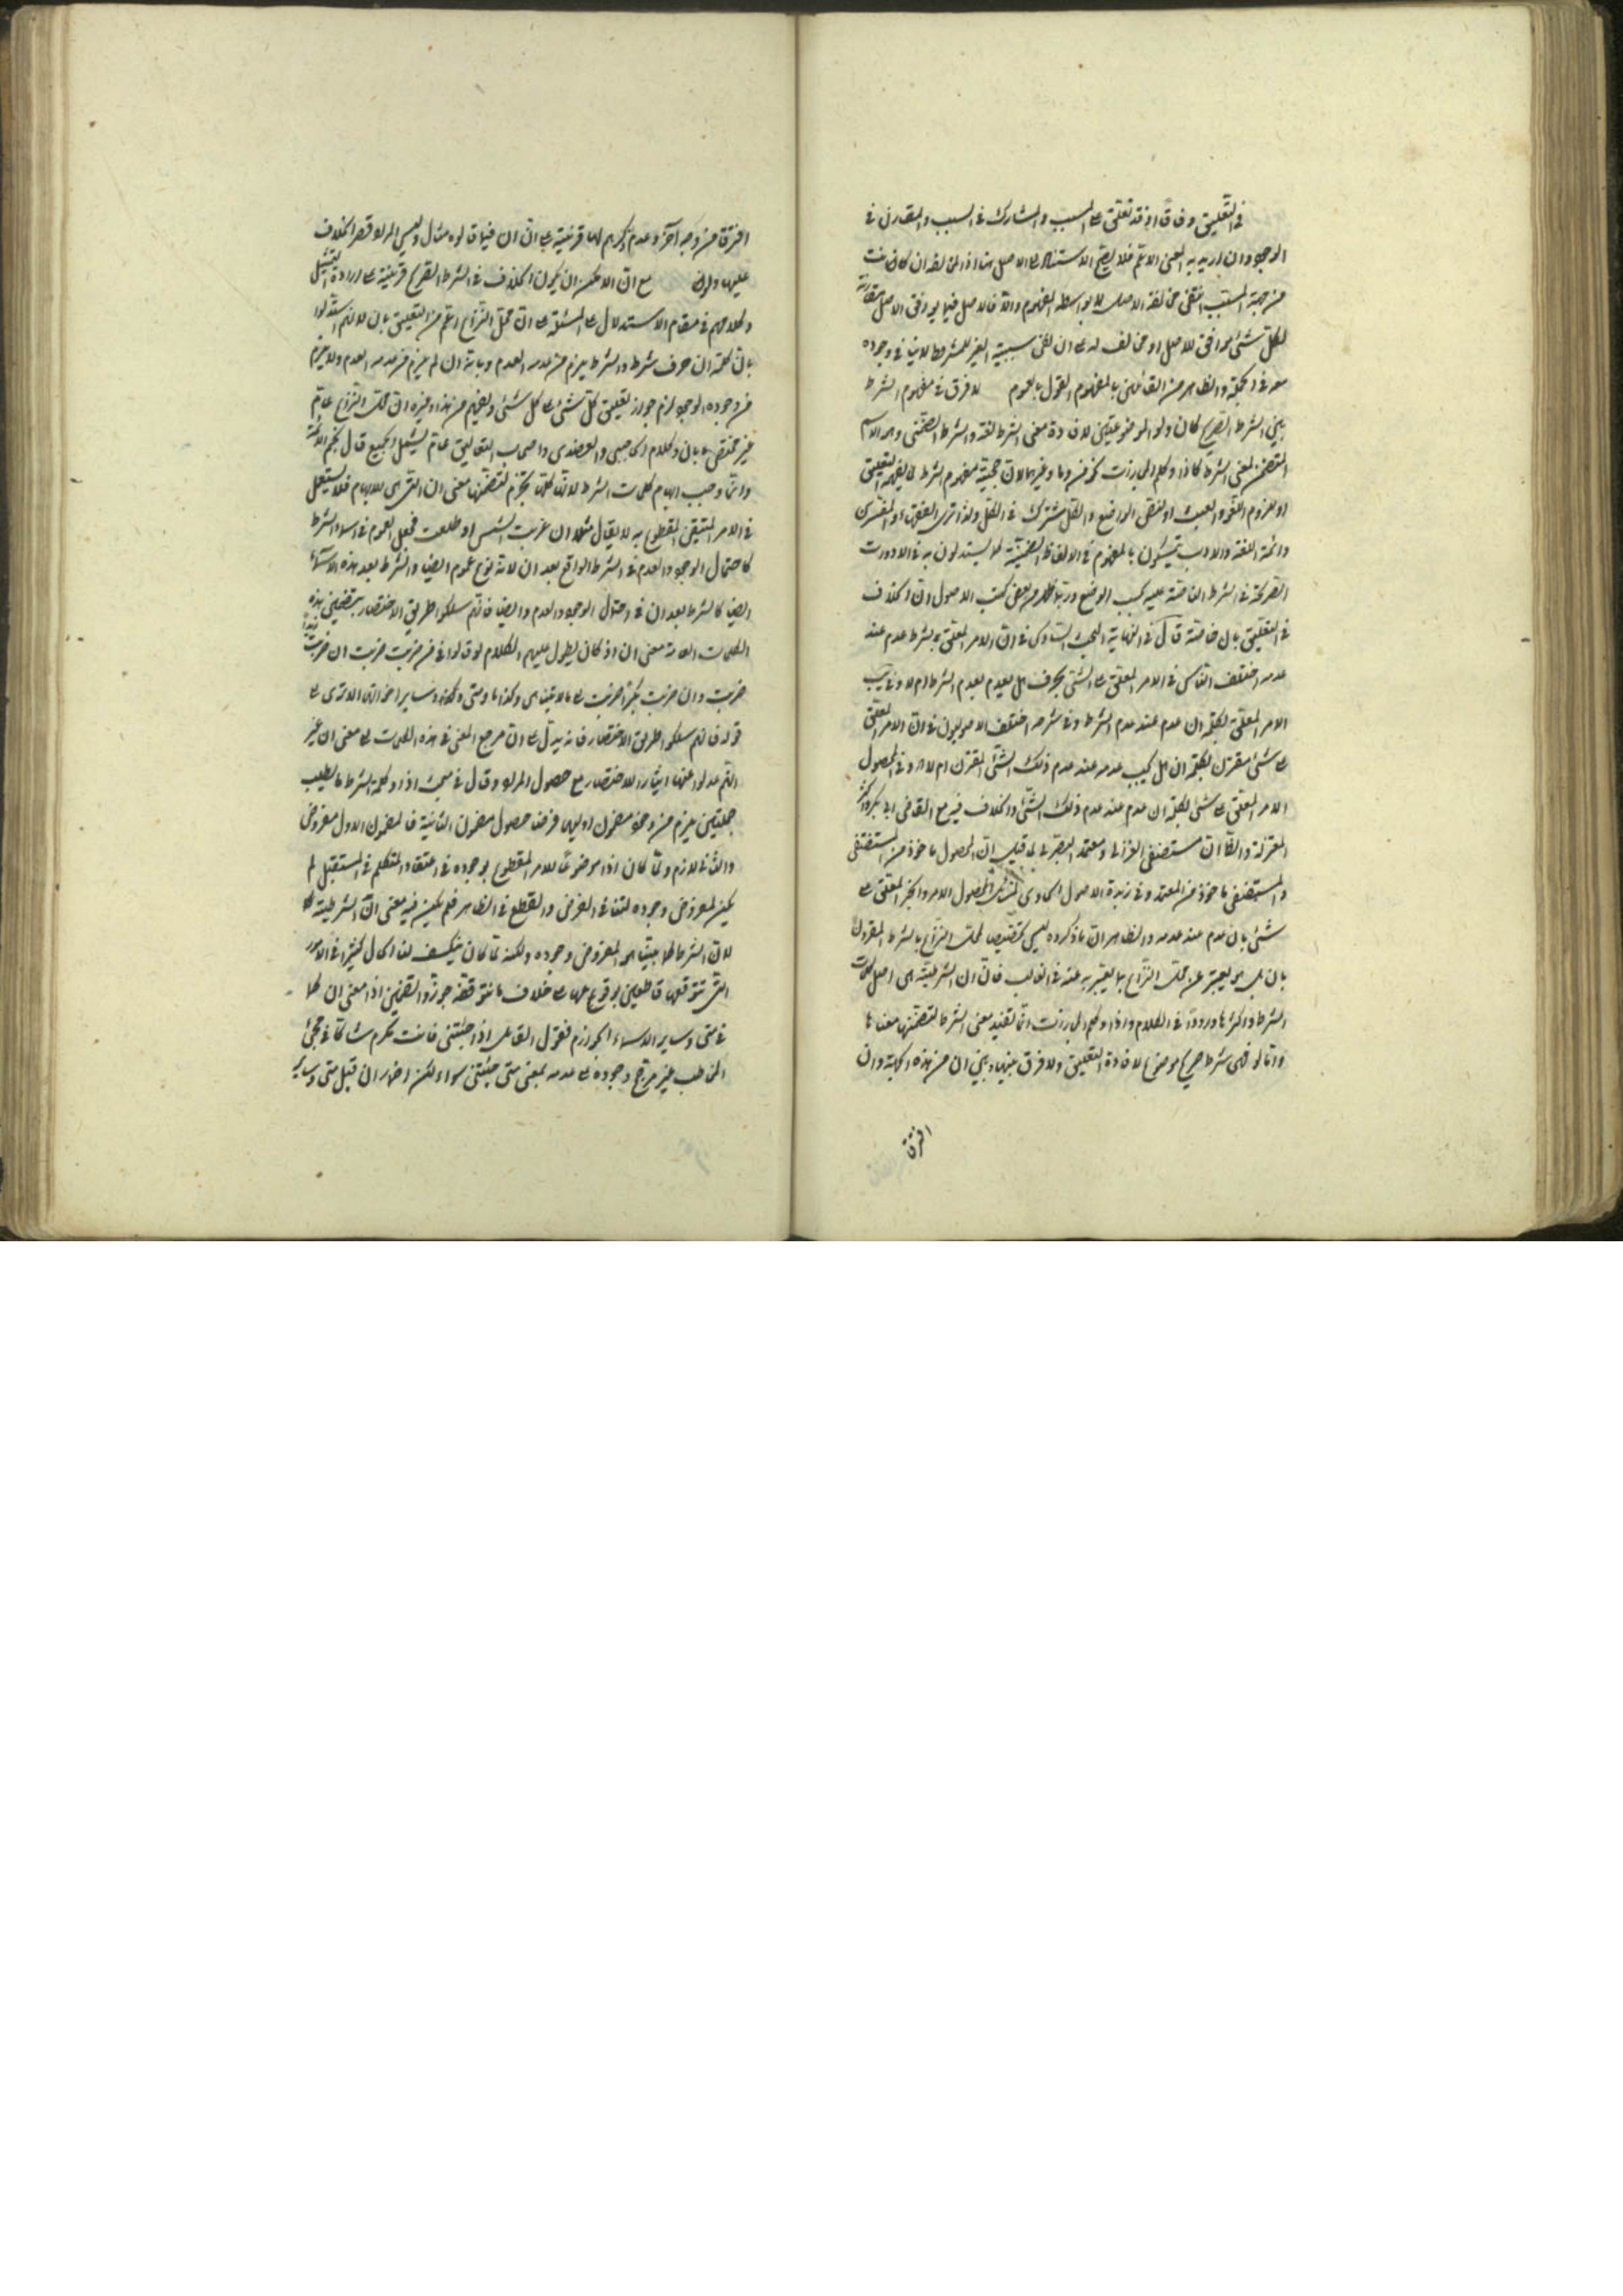 في التعليق وفاقا اذ قد تعلق على المسبب والمشارك في السبب والمقارن في
الوجود وان اريد به المعنى الاعم فلا يصح الاستناد الى الاصل هنا اذ المخالفة ان كانت
من جهة السبب انتفى مخالفة الاصل بواسطة المفهوم والا فالاصل فيما يوافق الاصل مقارنة
لكل شئ موافق للاصل او مخالف له على ان نفى سببية الغير للمشروط لا ينافي وجوده
معه في الجملة والظاهر من القائلين بالمفهوم القول بالعموم لا فرق في مفهوم الشرط
بين الشرط الصريح كان ولو الموضوعتين لافادة معنى الشرط لغة والشرط الضمني وهو الاسم
المتضمن لمعنى الشرط كاذا وكلم المجازات نحو من وما وغيرهما لان حجية مفهوم الشرط لما يفهمه التعليق
او للزوم اللغو والعبث او لنقض الواضع والكل مشترك في الكل ولذا ترى الفقهاء والمفسرين
وائمة اللغة والادب يتمسكون بالمفهوم في الالفاظ الضمنية كما يستدلون به في الادوات
الصريحة في الشرط الناصة عليه بحسب الوضع وربما يظهر من بعض كتب الاصول ان الخلاف
في التعليق بان خاصة قال في النهاية البحث السادس في ان الامر المعلق بشرط عدم عند
عدمه اختلف الناس في الامر المعلق على الشئ بحرف هل يعدم بعدم الشرط ام لا وفي تهذيب
الامر المعلق بكلمة ان عدم عند عدم الشرط وفي شرحه اختلف الاصوليون في ان الامر المعلق
على شئ مقترن بكلمة ان هل يجب عدمه عند عدم ذلك الشئ المقترن ام لا وفي المحصول
الامر المعلق على شئ بكلمة ان عدم عند عدم ذلك الشئ والخلاف فيه مع القاضي ابي بكر واكثر
المعتزلة والظاهر ان مستصفى الغزالي ومعتمد البصري لما قيل ان المحصول ماخوذ من المستصفى
والمستصفى ماخوذ من المعتمد وفي زبدة الاصول الامر والخبر المعلق على
شئ بان عدم عند عدمه والظاهر ان ما ذكروه ليس تخصيصا لمحل النزاع بالشرط المقرون
بان بل هو تعبير عن محل النزاع بما يعبر به عنه في الغالب فان ان الشرطية هي اصل كلمات
الشرط واكثرها ورودا في الكلام واذا وكلم المجازات انما تفيد معنى الشرط لتضمنها معناها
واما لو فهي شرط صريح موضوع لافادة التعليق ولا فرق بينها وبين ان من هذه الجهة وان
افترقا
افترقا من وجه آخر وعدم ذكرهم لها قرينة على ان ان فيما قالوه مثال وليس المراد قصر الخلاف
عليها مع ان الامكن ان يكون الخلاف في الشرط الصريح قرينة على ارادة التمثيل
وكلامهم في مقام الاستدلال على المسئلة على ان محل النزاع اعم من التعليق بان لانهم استدلوا
بان كلمة ان حرف شرط والشرط يلزم من عدمه العدم وبانه ان لم يلزم من عدمه العدم ولا يلزم
من وجوده الوجود لزم جواز تعليق كل شئ على كل شئ ويفهم من هذا وغيره ان محل النزاع عام
غير مختص بان وكلام الحاجبي والعضدي واصحاب التعاليق عام يشمل الجميع قال نجم الائمة
وانما وجب ابهام كلمات الشرط لانها كلها تجزم لتضمنها معنى ان التي هي للابهام فلا يستعمل
في الامر المتيقن المقطوع به لا يقال مثلا ان غربت الشمس او طلعت فجعل العموم في اسماء الشرط
كاحتمال الوجود والعدم في الشرط الواقع بعد ان لانه نوع عموم ايضا والشرط بعد هذه الاسماء
ايضا كالشرط بعد ان في احتمال الوجود والعدم وايضا فانهم سلكوا طريق الاختصار بتضمين هذه
الكلمات العامة معنى ان اذ كان يطول عليهم الكلام لو قالوا في من ضربت ضربت ان ضربت زيدا
ضربت وان ضربت بكرا ضربت الى ما لا يتناهى وكذا ما ومتى وكيف وساير اخواتها الا ترى الى
قوله فانهم سلكوا طريق الاختصار فانه يدل على ان مرجع المعنى في هذه الكلمات الى معنى ان غير
انهم عدلوا عنها ايثارا للاختصار مع حصول المراد وقال في مبحث اذا وكلمة الشرط ما يطلب
جملتين يلزم من وجود مضمون اوليهما فرضا حصول مضمون الثانية فالمضمون الاول مفروض
والثاني لازم ولما كان اذا موضوعا للامر المقطوع بوجوده في اعتقاد المتكلم في المستقبل لم
يكن لمفروض وجوده لتنافي الفرض والقطع في الظاهر فلم يكن فيه معنى ان الشرطية
لان الشرط كما بينا هو المفروض وجوده ولكنه لما كان ينكشف لنا الحال كثيرا في الامور
التي نتوقعها قاطعين بوقوعها على خلاف ما نتوقعه جوزوا تضمين اذا معنى ان كما
في متى وساير الاسماء الجوازم فتقول القائل اذا جئتني فانت مكرم شاكا في مجئ
المخاطب غير مرجح وجوده على عدمه بمعنى متى جئتني سواء لكن اضمار ان قبل متى وساير